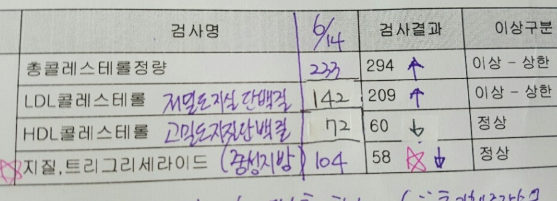 검사명 6/14 검사결과 이상구분
총콜레스테롤정량 233 294 ↑ 이상 - 상한
LDL콜레스테롤 저밀도지질 단백질 142 209 ↑ 이상 - 상한
HDL콜레스테롤 고밀도지질단백질 72 60 ↓ 정상
☆지질,트리그리세라이드 (중성지방) 104 58 ☆↓ 정상